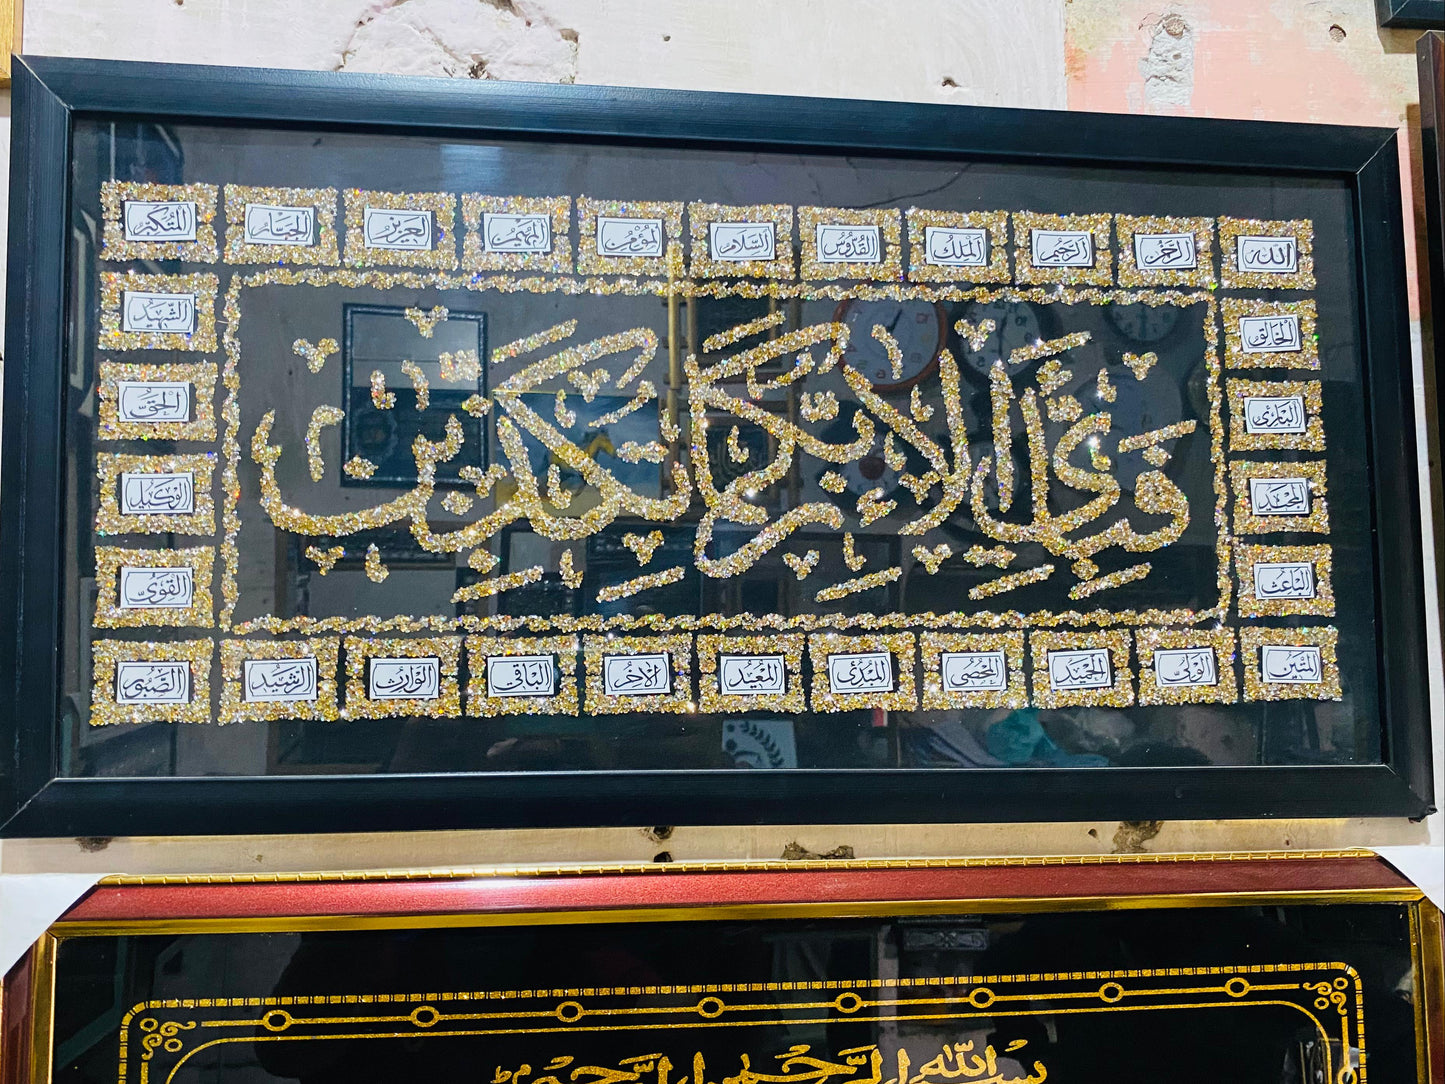 الله الرحمن الرحيم الملك القدوس السلام المؤمن المهيمن العزيز الجبار المتكبر
الخالق
البارئ
المجيد
الباعث
فَبِأَيِّ آلَاءِ رَبِّكُمَا تُكَذِّبَانِ
الشهيد
الحق
الوكيل
القوي
المتين الولي الحميد المحصي المبدئ المعيد الآخر الباقي الوارث الرشيد الصبور
بسم الله الرحمن الرحيم